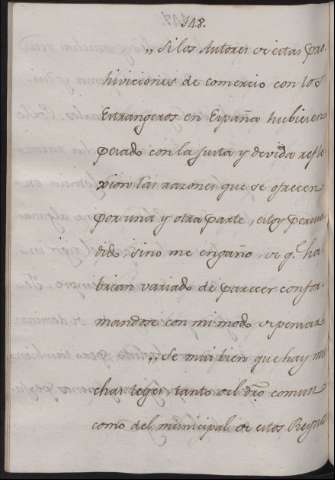 348.
„Si los Autores de estas pro
hiviciones de comercio con los
Extrangeros en España hubieren
pesado con la justa y devida refle
xion las razones que se ofrecen
por una y otra parte, estoy persua
dido, sino me engaño, de q.e ha
brian variado de parecer confor
mandose con mi modo de pensar.
„Se mui bien que hay mu
chas leyes, tanto del dro comun
como del municipal de estos Reynos